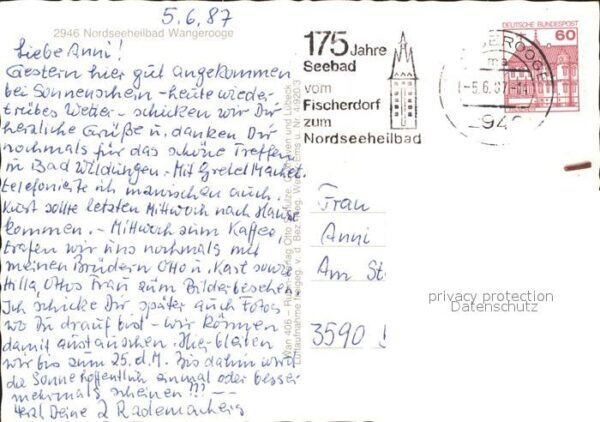 5.6.87
2946 Nordseeheilbad Wangerooge
Liebe Anni!
Gestern hier gut angekommen
bei Sonnenschein - heute wieder
trübes Wetter - schicken wir Dir
herzliche Grüße u. danken Dir
nochmals für das schöne Treffen
in Bad Wildungen. - Mit Gretel
telefonierte ich inzwischen auch.
Kurt sollte letzten Mittwoch nach Hause
kommen. - Mittwoch zum Kaffee,
trafen wir uns nochmals mit
meinen Brüdern Otto u. Karl sowie
Hilla, Ottos Frau zum Bilderbesehen.
Ich schicke Dir später auch Fotos
wo Du drauf bist - wir können
damit austauschen. Hier bleiben
wir bis zum 25. d.M. Bis dahin wird
die Sonne hoffentlich einmal oder besser
mehrmals scheinen!!! --
Herzl. Deine 2 Rademachers
175 Jahre
Seebad
vom
Fischerdorf
zum
Nordseeheilbad
DEUTSCHE BUNDESPOST
60
-5.6.87
Frau
Anni
Am St
3590
privacy protection
Datenschutz